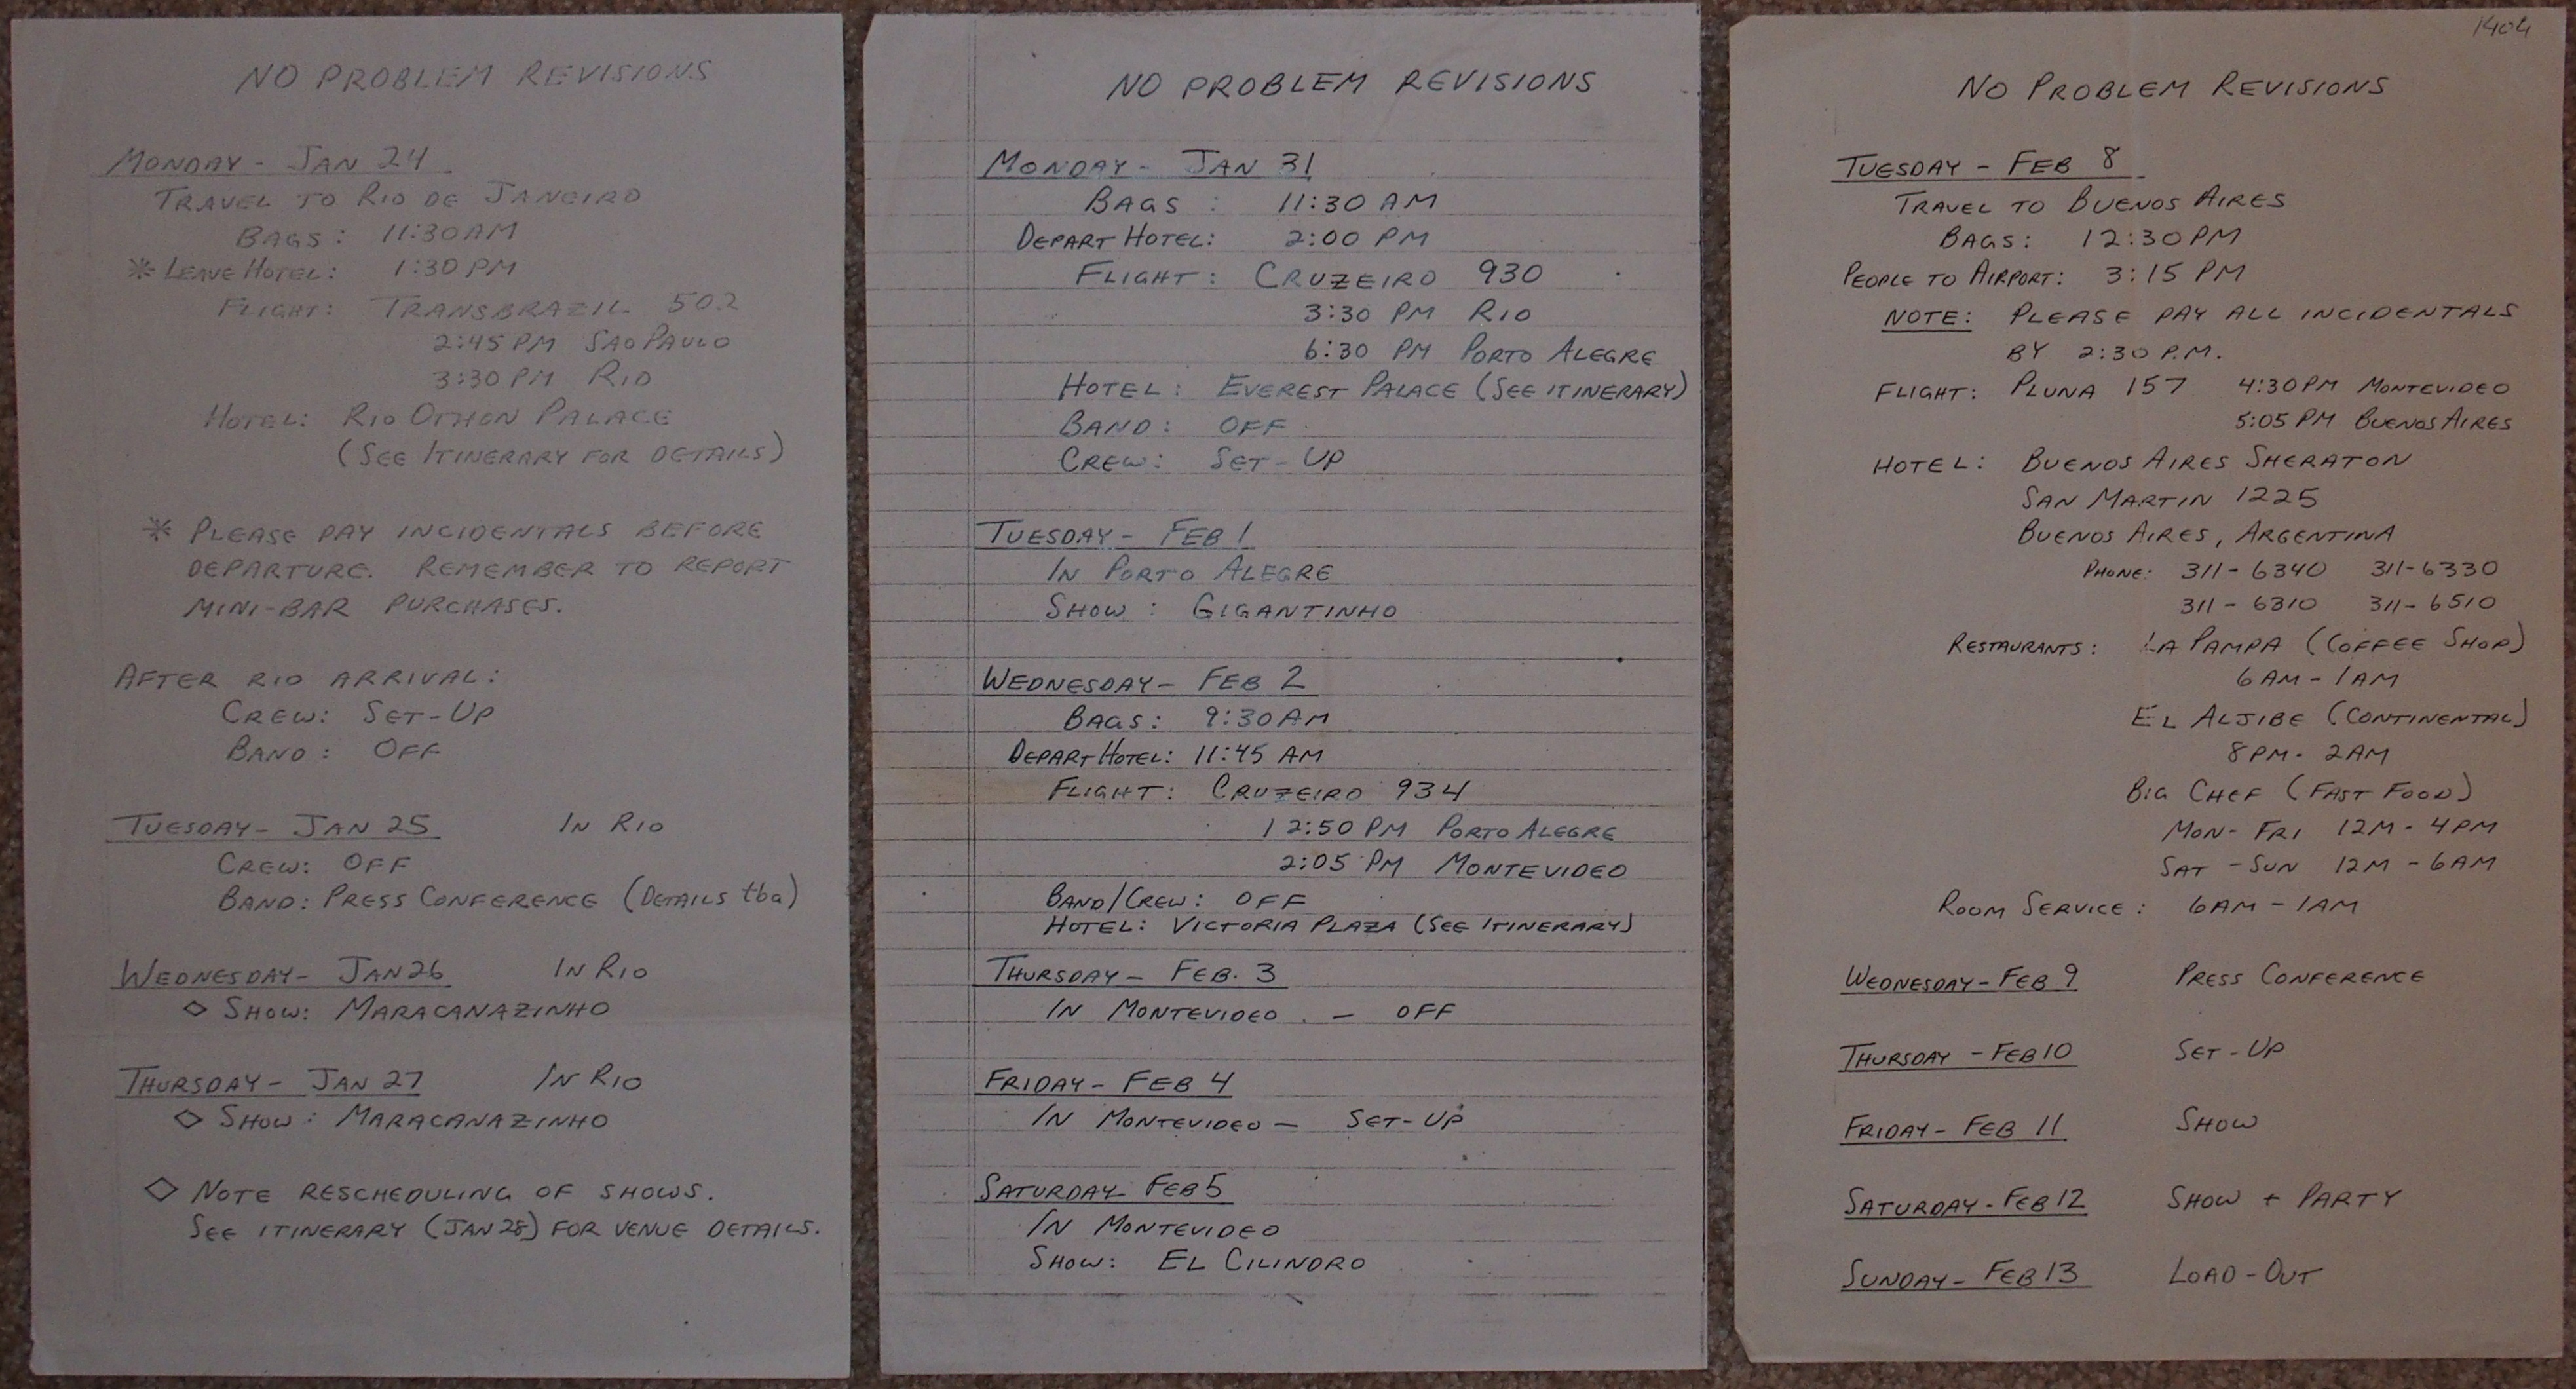 NO PROBLEM REVISIONS
MONDAY - JAN 24
TRAVEL TO RIO DE JANEIRO
BAGS: 11:30 AM
* LEAVE HOTEL: 1:30 PM
FLIGHT: TRANSBRAZIL 502
2:45 PM SAO PAULO
3:30 PM RIO
HOTEL: RIO OTHON PALACE
(SEE ITINERARY FOR DETAILS)
* PLEASE PAY INCIDENTALS BEFORE
DEPARTURE. REMEMBER TO REPORT
MINI-BAR PURCHASES.
AFTER RIO ARRIVAL:
CREW: SET-UP
BAND: OFF
TUESDAY - JAN 25 IN RIO
CREW: OFF
BAND: PRESS CONFERENCE (DETAILS tba)
WEDNESDAY - JAN 26 IN RIO
◇ SHOW: MARACANAZINHO
THURSDAY - JAN 27 IN RIO
◇ SHOW: MARACANAZINHO
◇ NOTE RESCHEDULING OF SHOWS.
SEE ITINERARY (JAN 28) FOR VENUE DETAILS.
NO PROBLEM REVISIONS
MONDAY - JAN 31
BAGS: 11:30 AM
DEPART HOTEL: 2:00 PM
FLIGHT: CRUZEIRO 930
3:30 PM RIO
6:30 PM PORTO ALEGRE
HOTEL: EVEREST PALACE (SEE ITINERARY)
BAND: OFF
CREW: SET-UP
TUESDAY - FEB 1
IN PORTO ALEGRE
SHOW: GIGANTINHO
WEDNESDAY - FEB 2
BAGS: 9:30 AM
DEPART HOTEL: 11:45 AM
FLIGHT: CRUZEIRO 934
12:50 PM PORTO ALEGRE
2:05 PM MONTEVIDEO
BAND/CREW: OFF
HOTEL: VICTORIA PLAZA (SEE ITINERARY)
THURSDAY - FEB. 3
IN MONTEVIDEO - OFF
FRIDAY - FEB 4
IN MONTEVIDEO - SET-UP
SATURDAY FEB 5
IN MONTEVIDEO
SHOW: EL CILINDRO
1404
NO PROBLEM REVISIONS
TUESDAY - FEB 8
TRAVEL TO BUENOS AIRES
BAGS: 12:30 PM
PEOPLE TO AIRPORT: 3:15 PM
NOTE: PLEASE PAY ALL INCIDENTALS
BY 2:30 P.M.
FLIGHT: PLUNA 157 4:30 PM MONTEVIDEO
5:05 PM BUENOS AIRES
HOTEL: BUENOS AIRES SHERATON
SAN MARTIN 1225
BUENOS AIRES, ARGENTINA
PHONE: 311-6340 311-6330
311-6310 311-6510
RESTAURANTS: LA PAMPA (COFFEE SHOP)
6 AM - 1 AM
EL ALJIBE (CONTINENTAL)
8 PM - 2 AM
BIG CHEF (FAST FOOD)
MON - FRI 12M - 4PM
SAT - SUN 12M - 6AM
ROOM SERVICE: 6AM - 1AM
WEDNESDAY - FEB 9 PRESS CONFERENCE
THURSDAY - FEB 10 SET-UP
FRIDAY - FEB 11 SHOW
SATURDAY - FEB 12 SHOW + PARTY
SUNDAY - FEB 13 LOAD-OUT